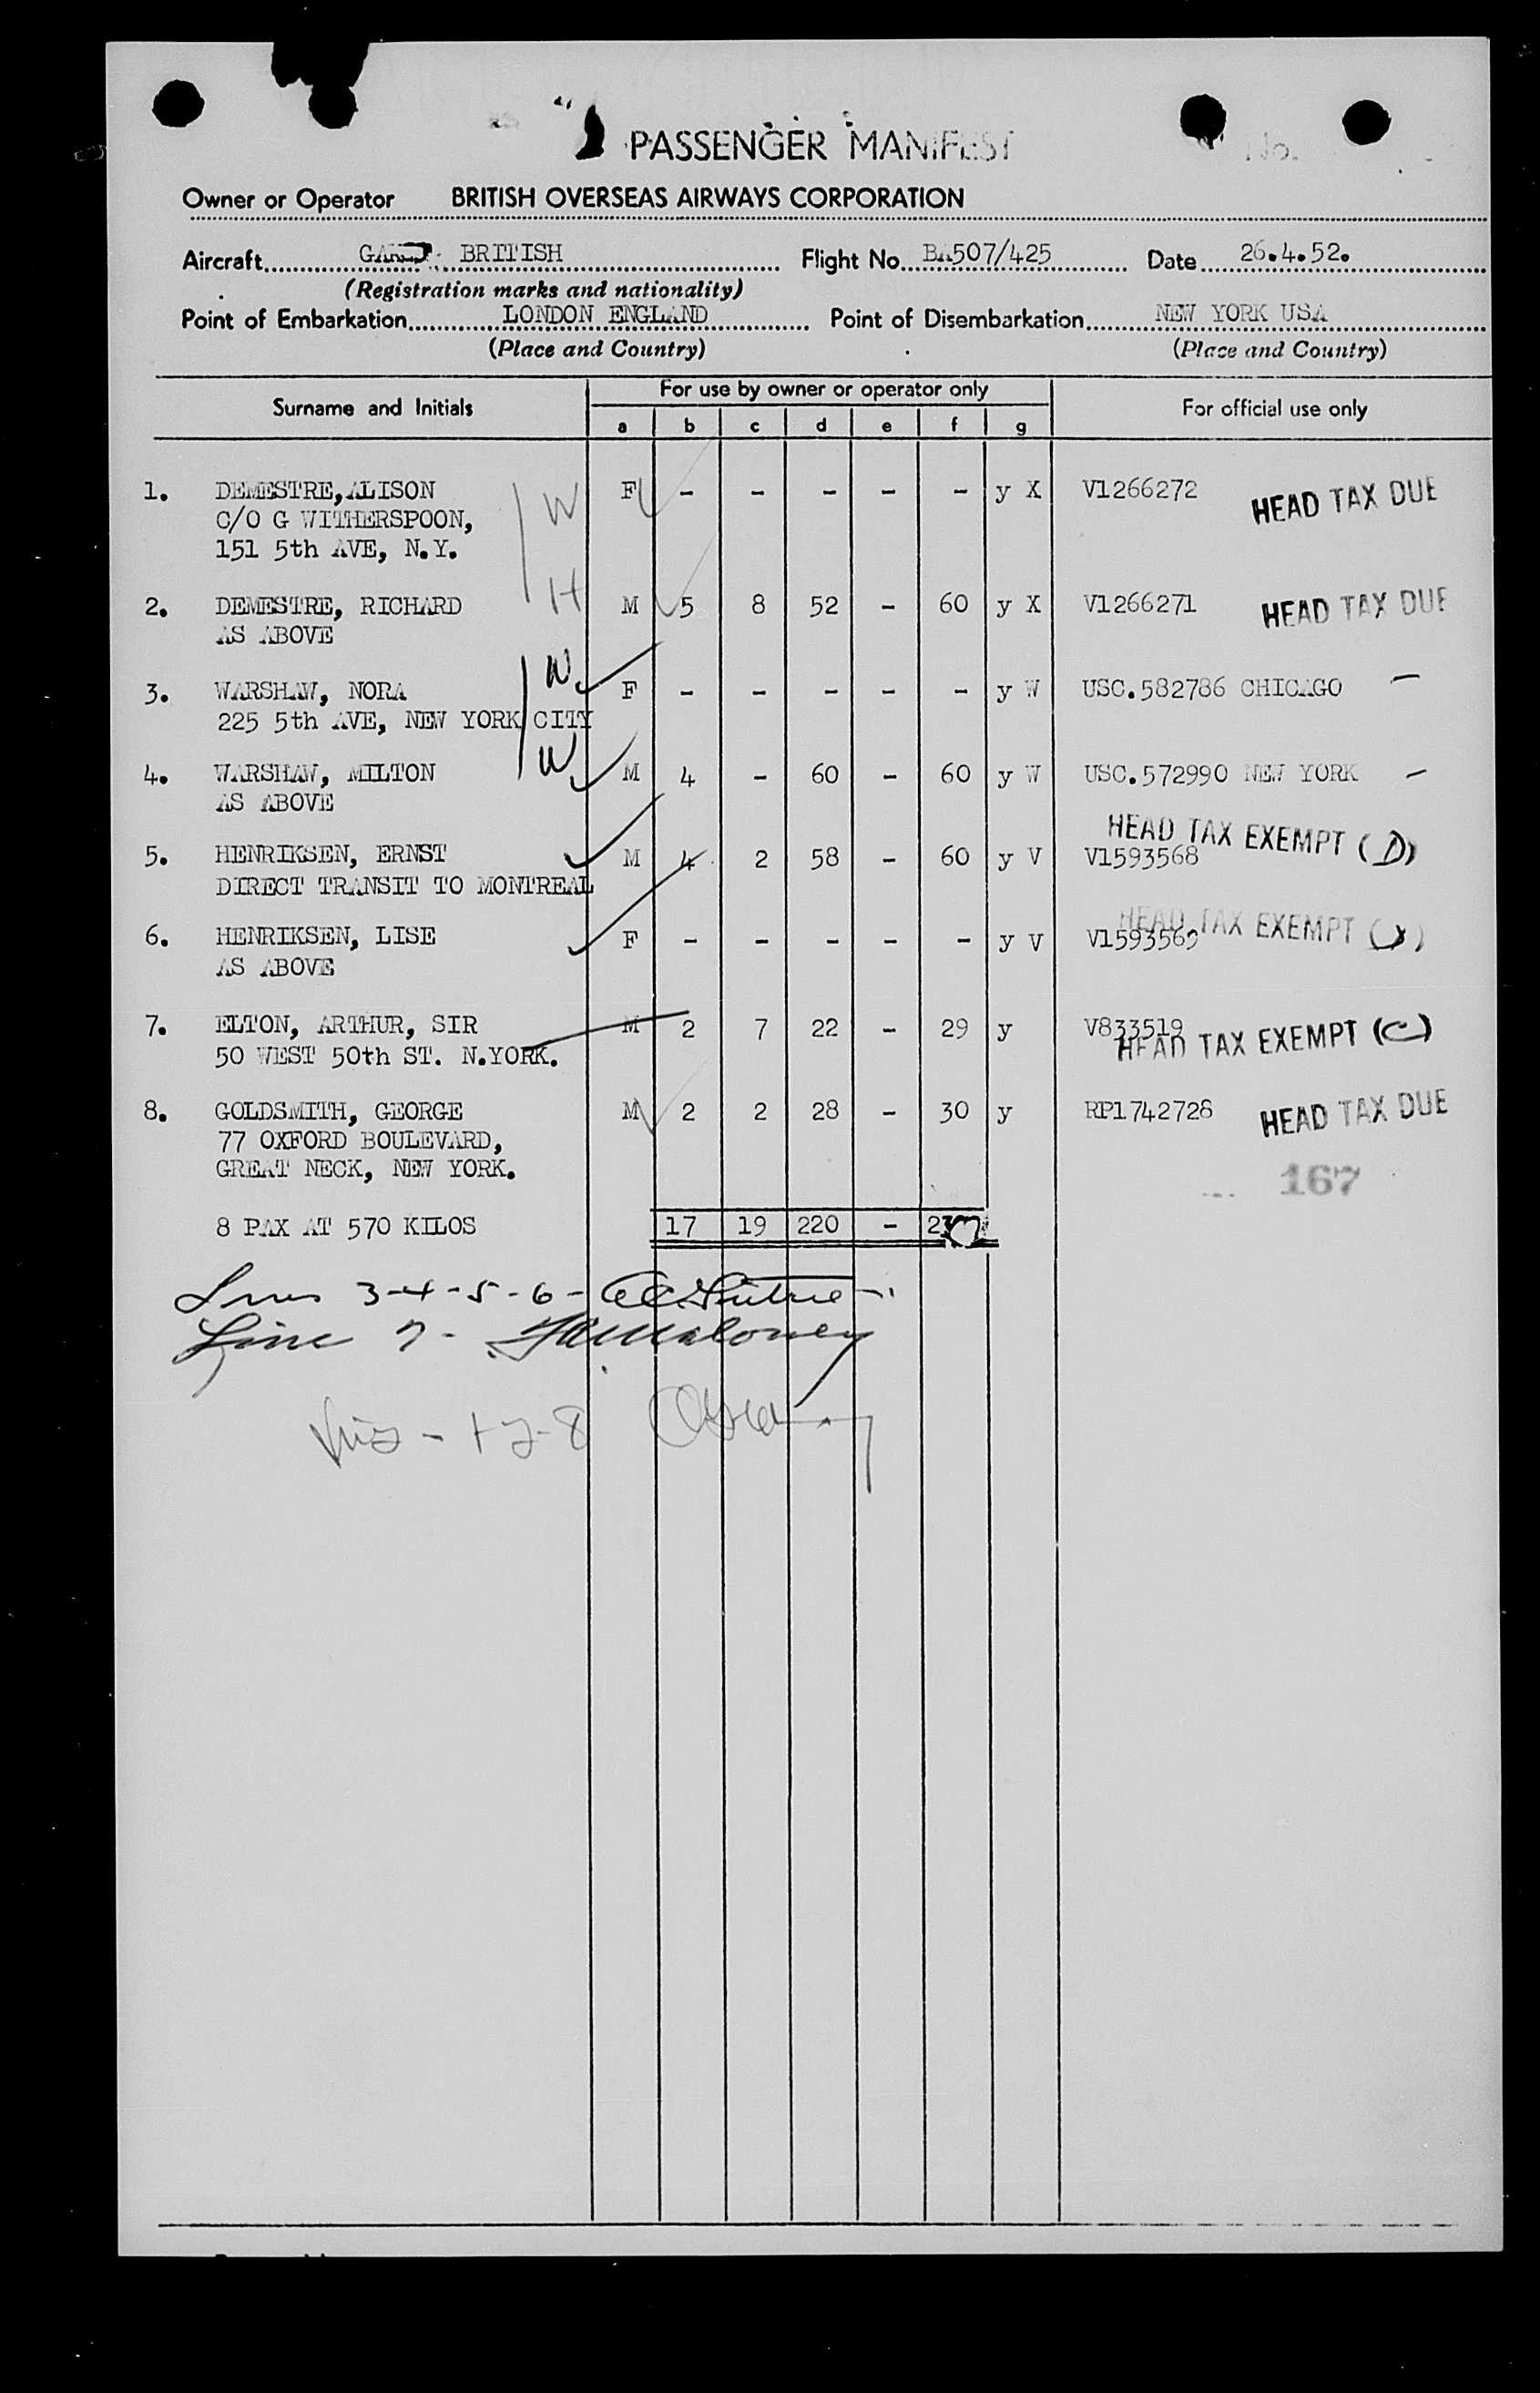 PASSENGER MANIFEST No.
Owner or Operator BRITISH OVERSEAS AIRWAYS CORPORATION
Aircraft BRITISH Flight No. BA507/425 Date 26.4.52.
(Registration marks and nationality)
Point of Embarkation LONDON ENGLAND Point of Disembarkation NEW YORK USA
(Place and Country) (Place and Country)
Surname and Initials For use by owner or operator only For official use only
a b c d e f g
1. DEMESTRE, ALISON W F - - - - - y X V1266272 HEAD TAX DUE
C/O G WITHERSPOON,
151 5th AVE, N.Y.
2. DEMESTRE, RICHARD H M 5 8 52 - 60 y X V1266271 HEAD TAX DUE
AS ABOVE
3. WARSHAW, NORA W F - - - - - y W USC.582786 CHICAGO -
225 5th AVE, NEW YORK CITY
4. WARSHAW, MILTON W M 4 - 60 - 60 y W USC.572990 NEW YORK -
AS ABOVE
HEAD TAX EXEMPT (D)
5. HENRIKSEN, ERNST M 4 2 58 - 60 y V V1593568
DIRECT TRANSIT TO MONTREAL
HEAD TAX EXEMPT (D)
6. HENRIKSEN, LISE F - - - - - y V V1593569
AS ABOVE
7. ELTON, ARTHUR, SIR M 2 7 22 - 29 y V833519
50 WEST 50th ST. N.YORK. HEAD TAX EXEMPT (C)
8. GOLDSMITH, GEORGE M 2 2 28 - 30 y RP1742728 HEAD TAX DUE
77 OXFORD BOULEVARD,
GREAT NECK, NEW YORK. 167
8 PAX AT 570 KILOS 17 19 220 -
Lines 3-4-5-6-
Line 7-
- 1-2-8